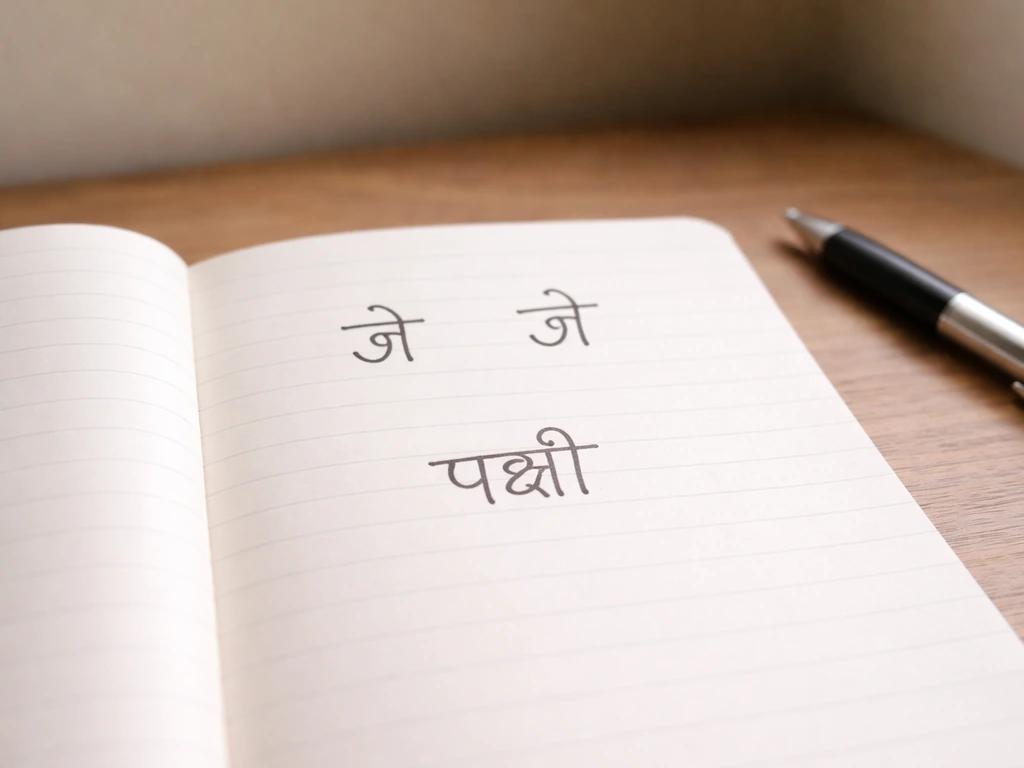 जे जे
पक्षी